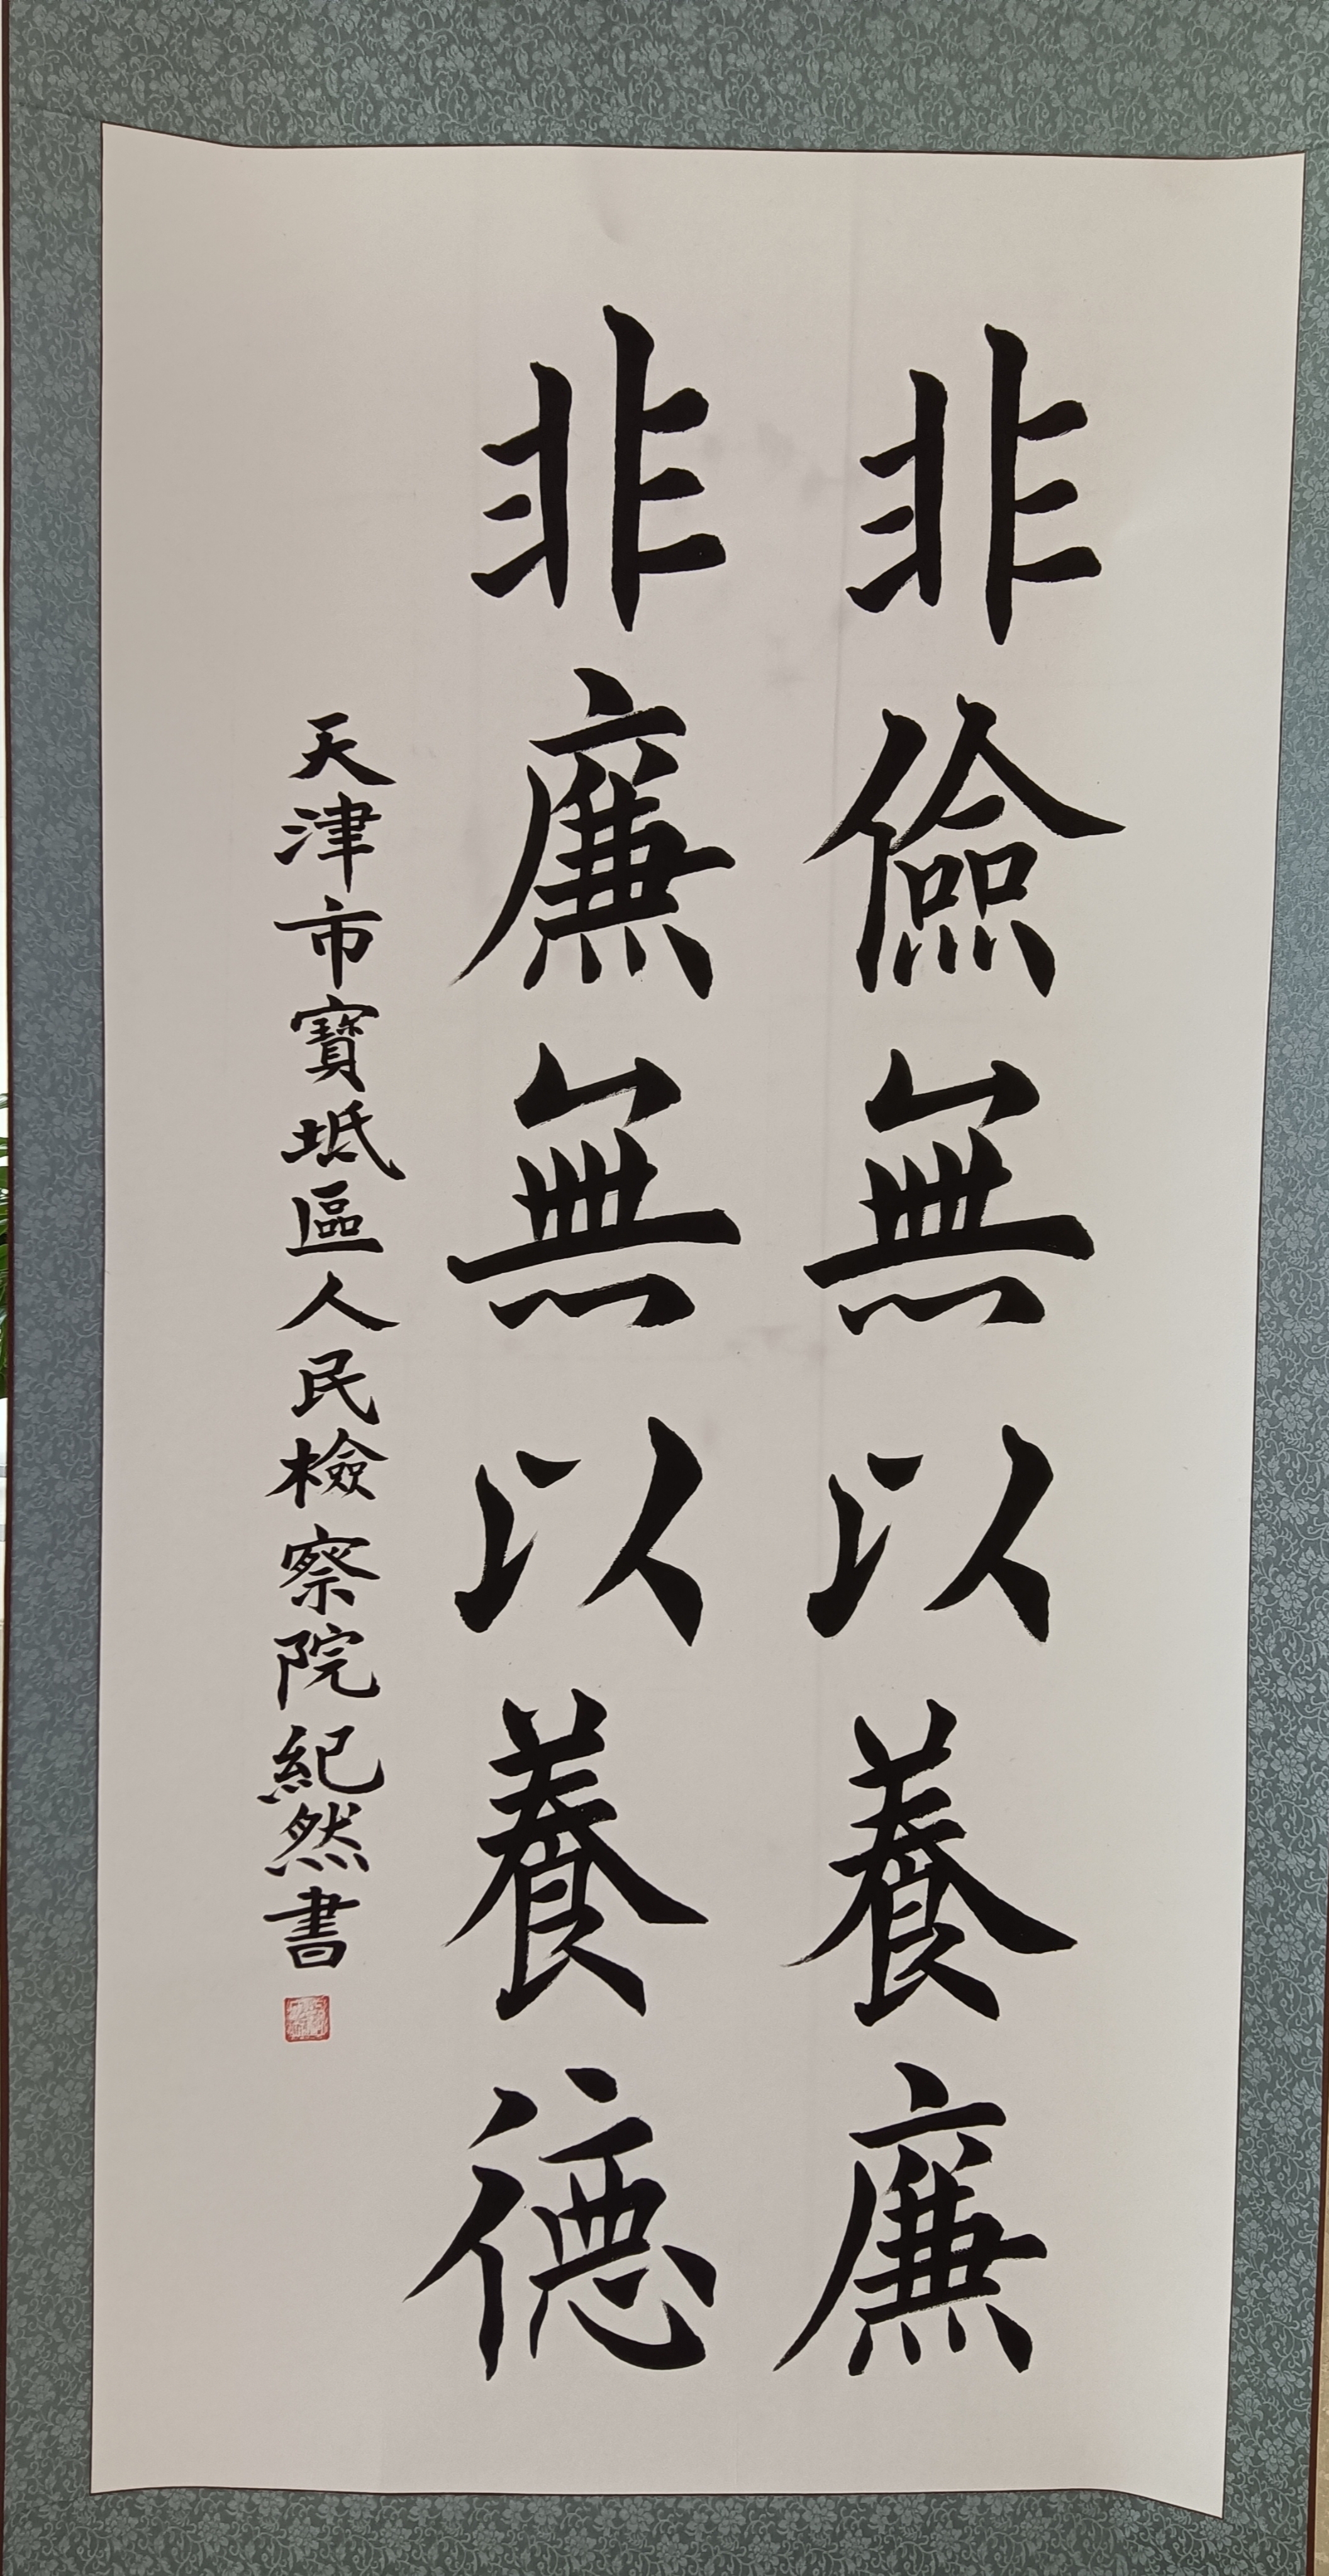 非儉無以養廉
非廉無以養德
天津市寶坻區人民檢察院紀然書